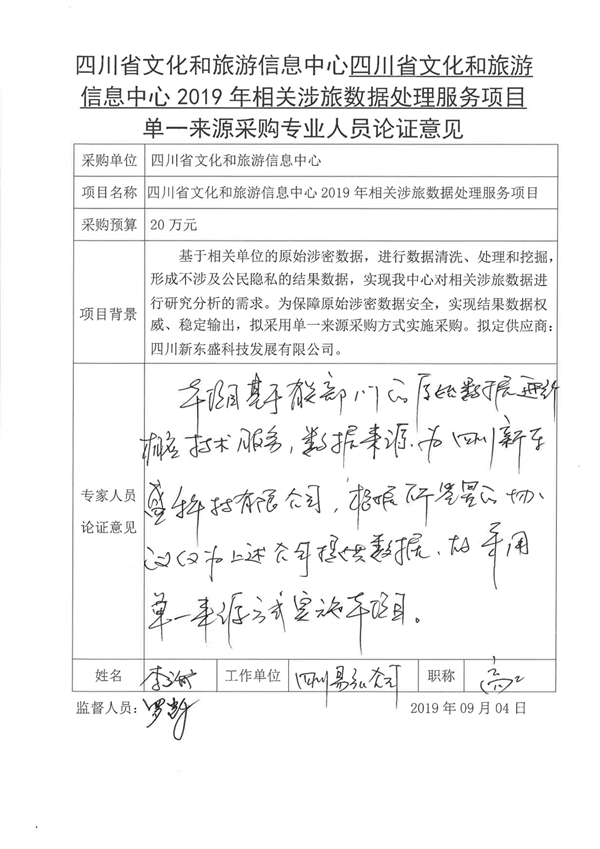 四川省文化和旅游信息中心四川省文化和旅游
信息中心 2019 年相关涉旅数据处理服务项目
单一来源采购专业人员论证意见
采购单位 四川省文化和旅游信息中心
项目名称 四川省文化和旅游信息中心 2019 年相关涉旅数据处理服务项目
采购预算 20 万元
项目背景 基于相关单位的原始涉密数据，进行数据清洗、处理和挖掘，
形成不涉及公民隐私的结果数据，实现我中心对相关涉旅数据进
行研究分析的需求。为保障原始涉密数据安全，实现结果数据权
威、稳定输出，拟采用单一来源采购方式实施采购。拟定供应商：
四川新东盛科技发展有限公司。
专家人员
论证意见
本项目基于有关部门的原始数据
技术服务，数据来源为四川新东
盛科技有限公司，根据所签署的协
议仅为上述公司提供数据，故采用
单一来源方式实施本项目。
姓名 李 工作单位 四川易弘公司 职称 高工
监督人员： 罗 2019 年 09 月 04 日